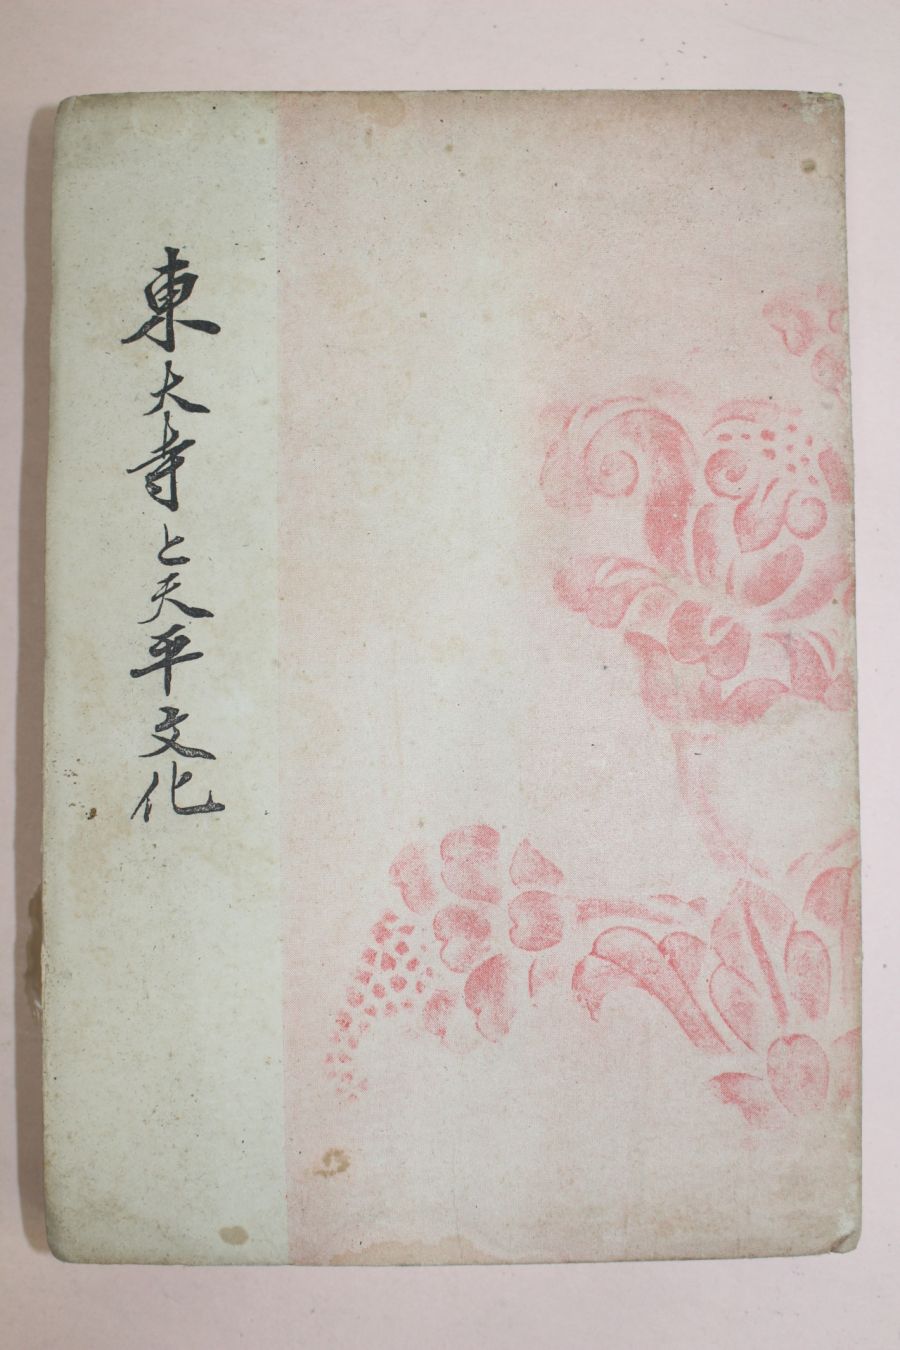 東大寺と天平文化